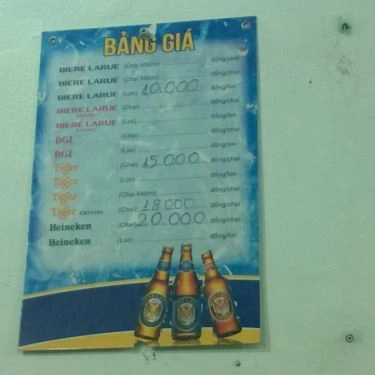 BẢNG GIÁ
BIERE LARUE (Chai 450ml) đồng/chai
BIERE LARUE (Chai 355ml) đồng/chai
BIERE LARUE (Lon) 10.000 đồng/lon
BIERE LARUE (Chai) đồng/chai
BIERE LARUE (Lon) đồng/lon
BGI (Chai) đồng/chai
BGI (Lon) đồng/lon
Tiger (Chai) 15.000 đồng/chai
Tiger (Lon) đồng/lon
Tiger (Chai 640ml) đồng/chai
Tiger CRYSTAL (Chai) 18.000 đồng/chai
Heineken (Chai) 20.000 đồng/chai
Heineken (Lon) đồng/lon